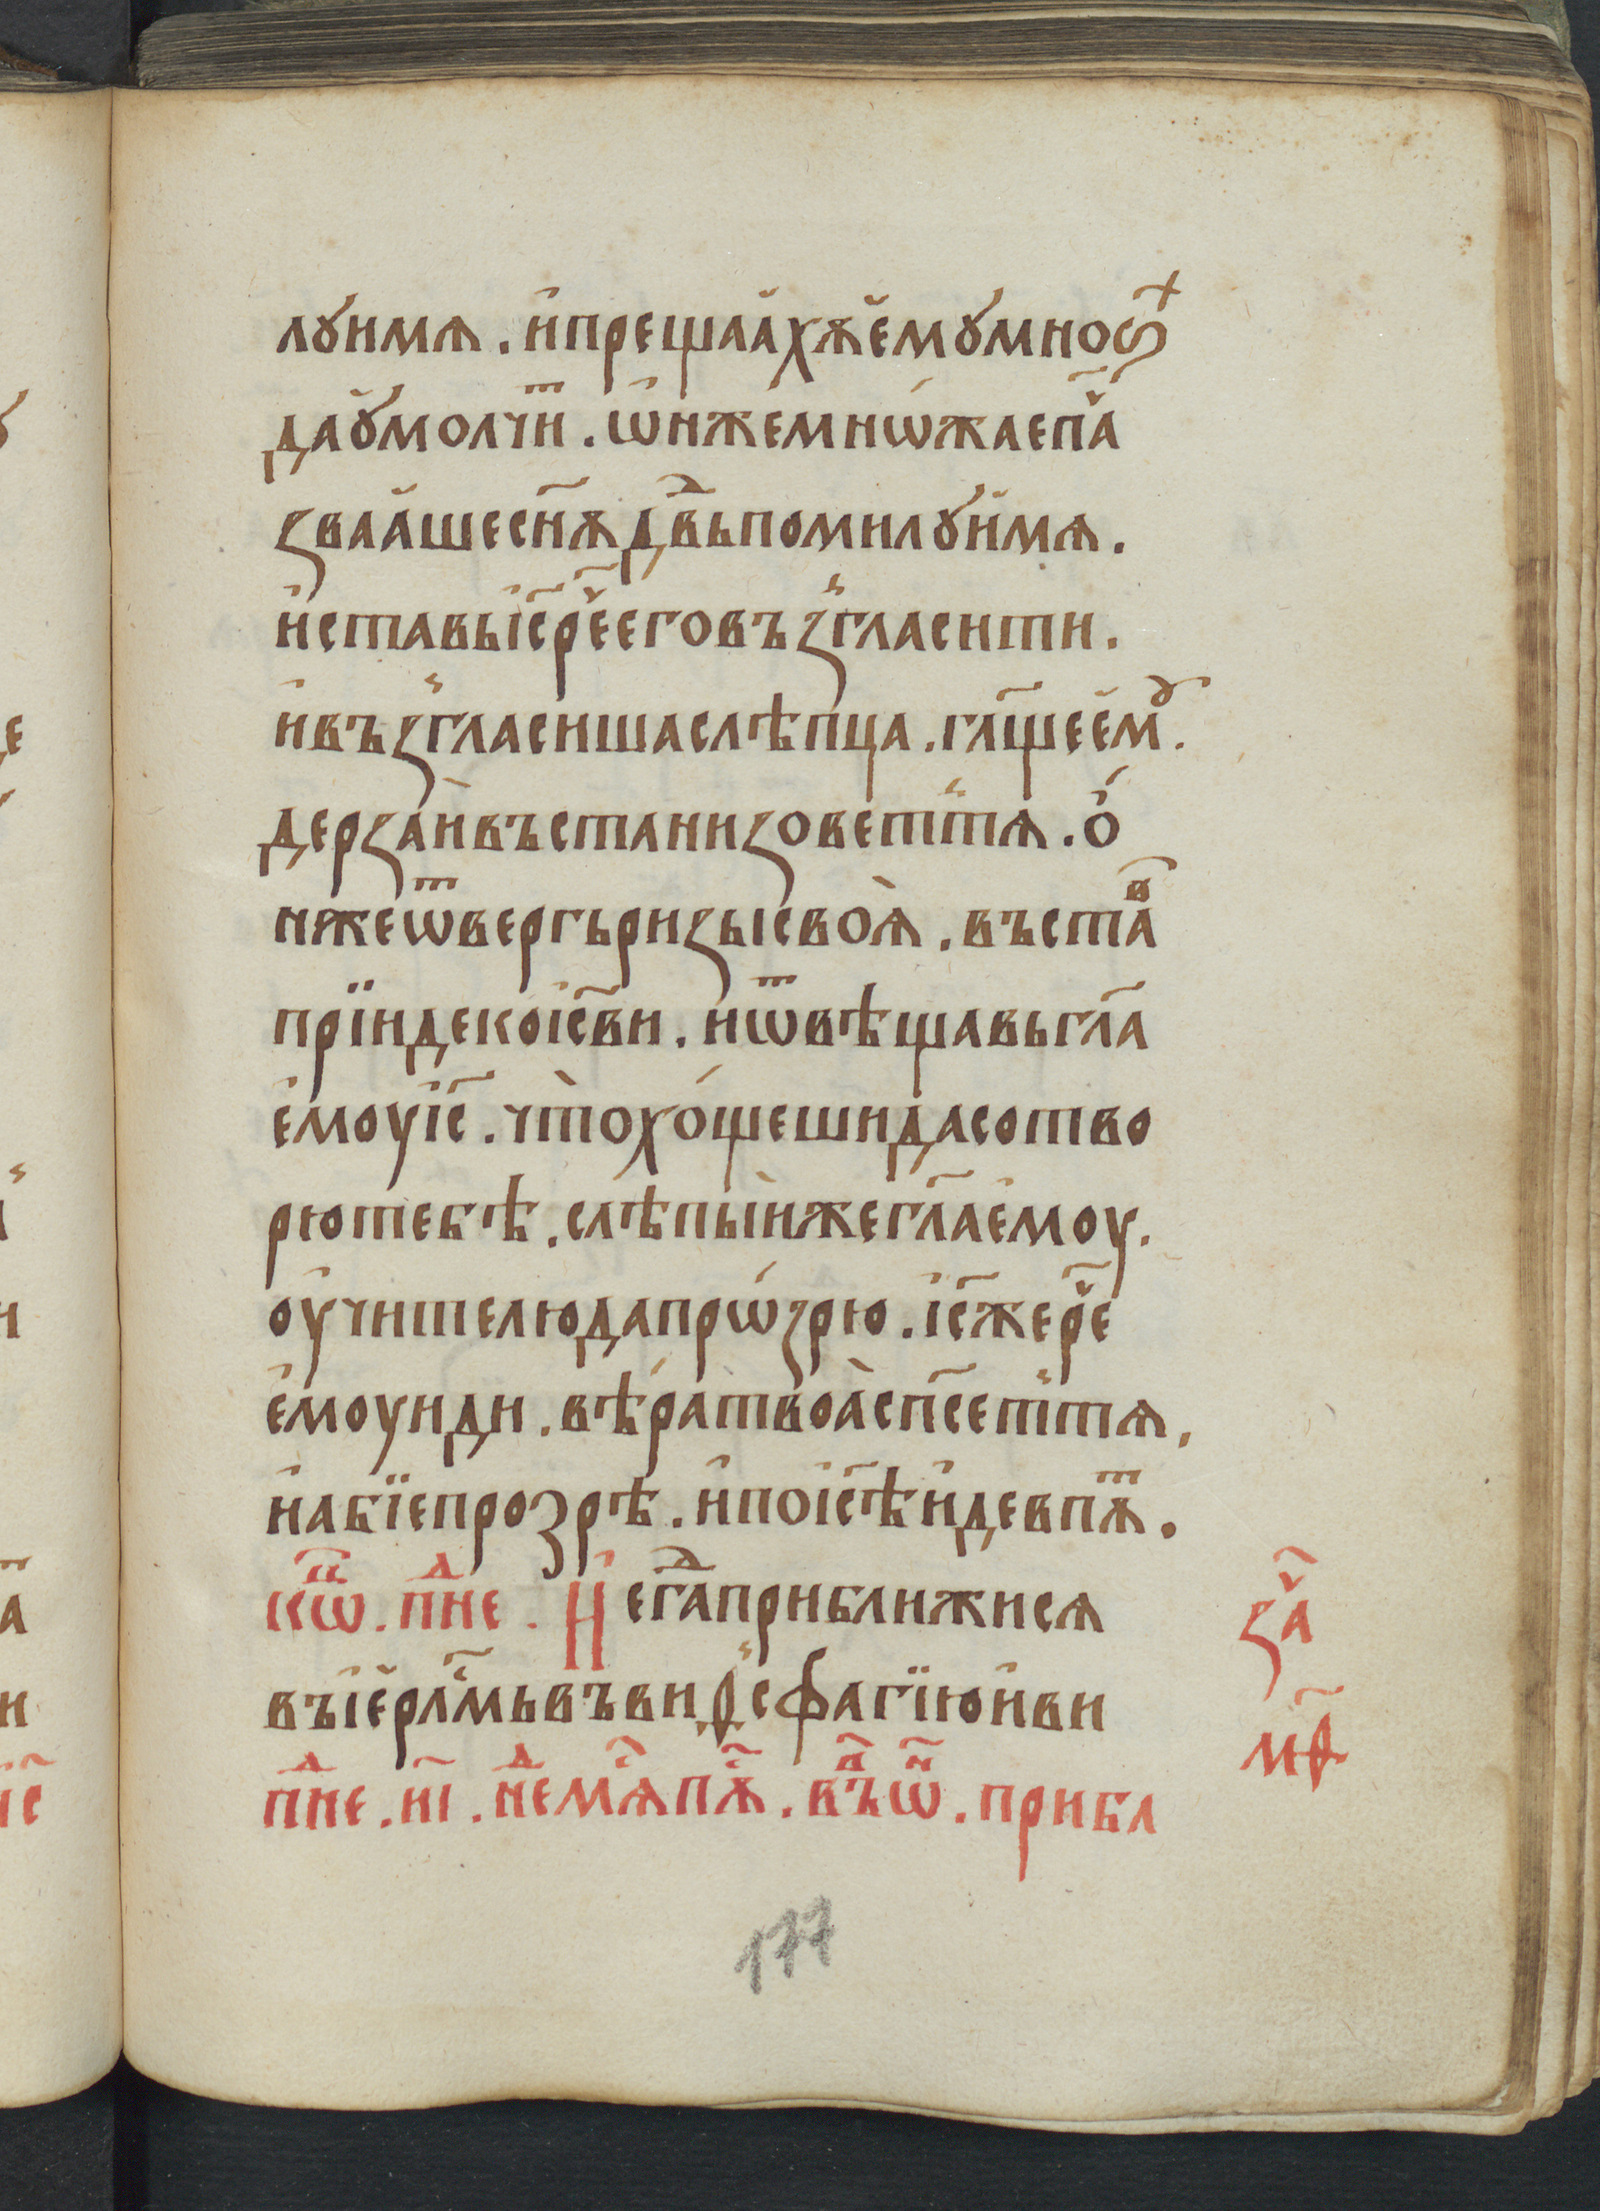 лꙋимѧ . и҆прещаа҆хѫе҆мꙋмноѕⷯ҇
даꙋ҆молчи́ⷮ . ѡ҆нжеⷨмнѡ́жаепа҃
ꙁваа҆шесн҃ѫдв҃ьпомилꙋи҆мѧ .
и҆ставьі҆с҃рече҃еговъꙁ̾гласити .
и҆въꙁ̾гласишаслѣпца . гл҃щеем꙼ꙋ .
дерꙁа́ивъстаниꙁовет̾тѧ . ѻ҆́
нжеѿвергъриꙁысвоѧ̀ . въстаⷡ҇
прїидекоі҆с҃ви . и҆ѿвѣщавьгл҃а
е҆моуі҆с҃ . чт̀охо́щешидасотво
рютебѣ . слѣпыи҆жегл҃ае҆моу .
оу҆чителюдапрѡ́ꙁрю . і҆с҃жере҃е
е҆моуиди . вѣ́ратвоа̀сп҃сет̾тѧ ,
и҆абїепроꙁрѣ . и҆поі҆с҃ѣи҆девпѫⷮ .
кѡⷩ҇ . пⷣне . И҆ егⷣ҇априближисѧ
въі҆ер҆лⷭ҇мьвъвиѳ̾сфагїюи҆ви
пⷣне . и҃і . нⷣемⷭ҇ѧпⷭ҇ѫ . вⷫ҇ъѡⷩ҇ . прибл
ꙁа҃
мѳ҃
177